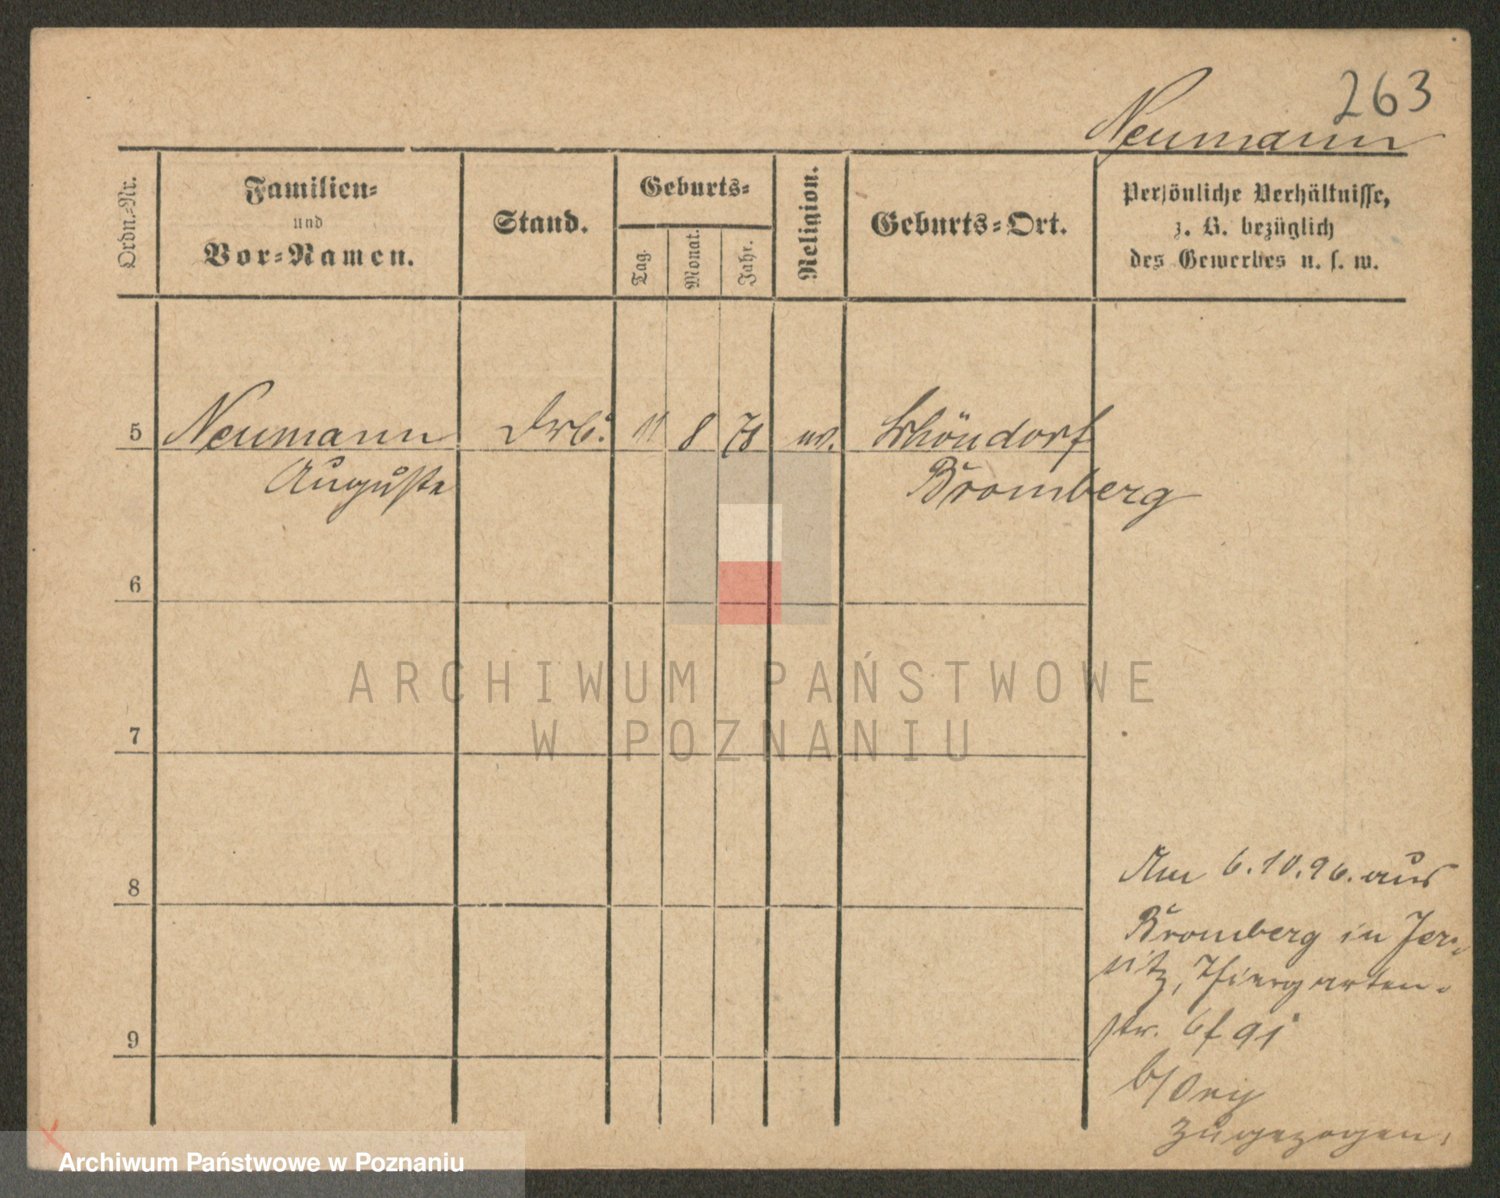 263
Neumann
Ordn.-Nr.
Familien-
und
Vor-Namen.
Stand.
Geburts-
Tag.
Monat.
Jahr.
Religion.
Geburts-Ort.
Persönliche Verhältnisse,
z. B. bezüglich
des Gewerbes u. s. w.
5 Neumann 11 8 78 ev. Schöndorf
Auguste Bromberg
6
ARCHIWUM PAŃSTWOWE
W POZNANIU
7
8
9
Am 6.10.96. aus
Bromberg in Jer-
sitz, Thiergarten-
str.
zugezogen.
Archiwum Państwowe w Poznaniu